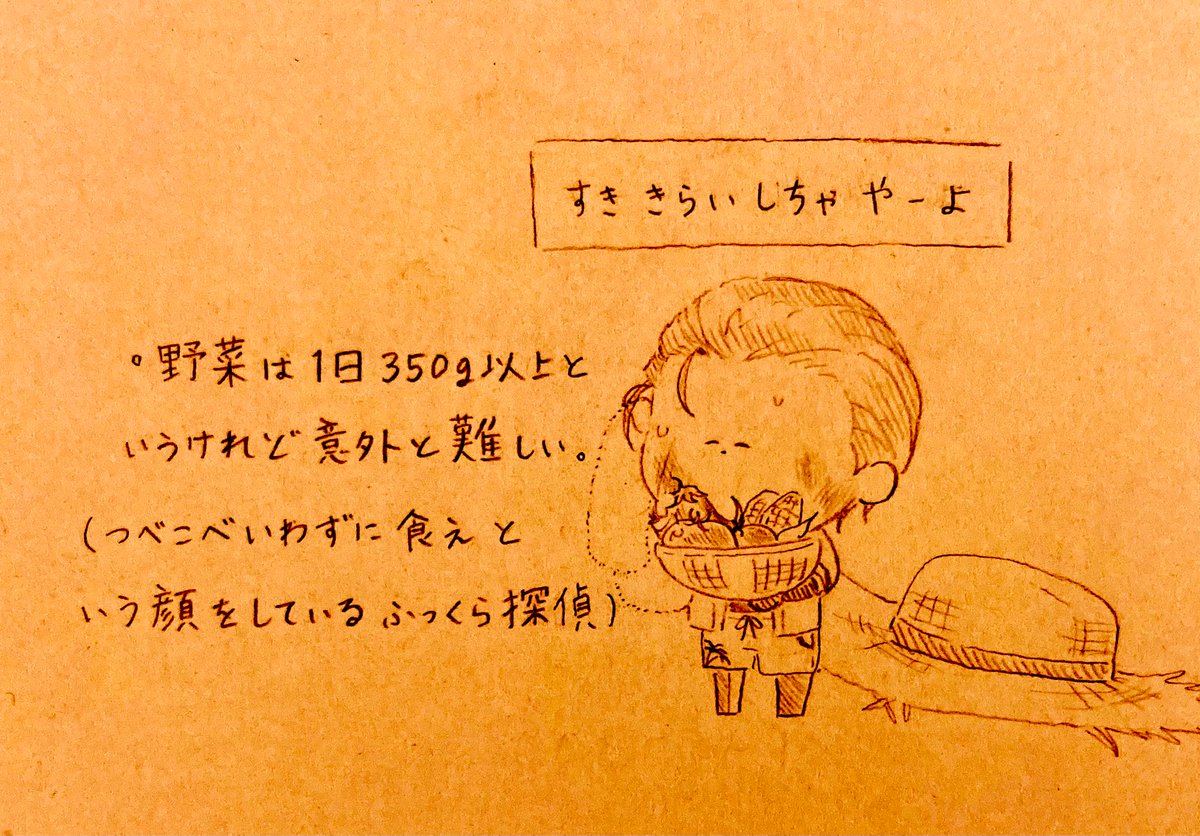 すき きらい しちゃ やーよ
。野菜は1日350g以上と
いうけれど意外と難しい。
(つべこべいわずに食えと
いう顔をしているふっくら探偵)